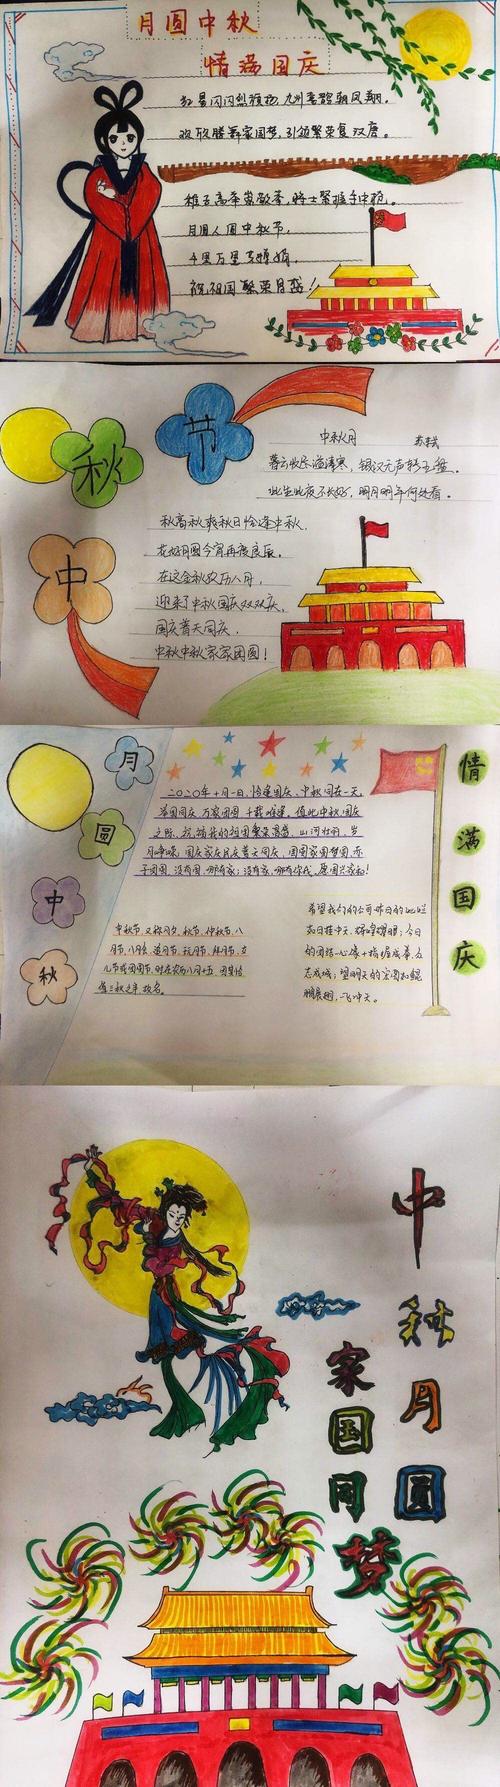 月圆中秋
情满国庆
红星闪闪烈旗扬,九州鸾歌朝凤翔。
欢欣腾舞家国梦,引领繁荣复汉唐。
将士紧握手中枪。
月圆人圆中秋节,
千里万里共婵娟,
祝祖国繁荣昌盛!
中秋节
中秋月 苏轼
暮云收尽溢清寒,银汉无声转玉盘。
此生此夜不长好,明月明年何处看。
秋高秋爽秋日恰逢中秋,
花好月圆今宵再度良辰。
在这金秋农历八月,
迎来了中秋国庆双双庆,
国庆普天同庆,
中秋中秋家家团圆!
月圆中秋
情满国庆
二〇二〇年十月一日,恰逢国庆、中秋同在一天,
举国同庆,万家团圆,千载难逢,值此中秋国庆
之际,祝福我的祖国繁荣昌盛,山河壮丽,岁
月峥嵘,国庆家庆民庆普天同庆,国圆家圆梦圆
没有国,哪有家;没有家,哪有你我,愿国兴家和!
中秋节,又称月夕、秋节、仲秋节、八
月节、八月会、追月节、玩月节、拜月节、女
儿节或团圆节,时在农历八月十五,因其恰
值三秋之半,故名。
希望我们的公司如日的
如日挂中天,辉煌耀眼,今日
的团结一心像十指握成拳,众
志成城;望明天的宏图如鲲
鹏展翅,一飞冲天。
中秋月圆
家国同梦